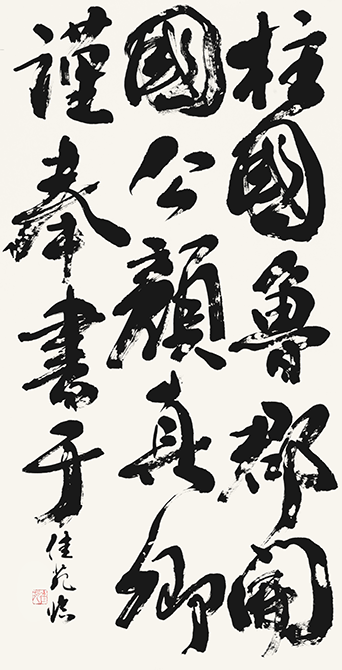 柱國魯郡開
國公顏真卿
謹奉書于
佳苑臨